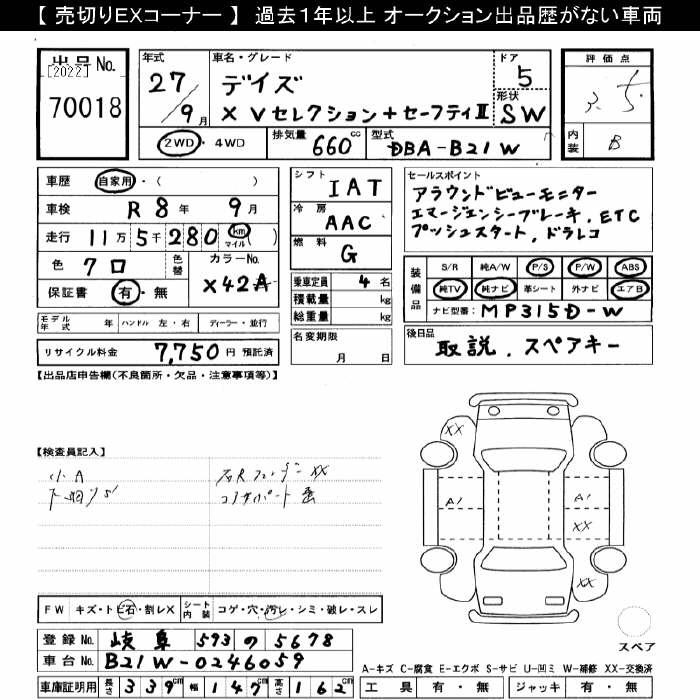 【 売切りEXコーナー 】 過去１年以上 オークション出品歴がない車両
出品No.
[2022]
70018
年式
27/9月
車名・グレード
デイズ
X Vセレクション+セーフティII
ドア
5
形状
SW
2WD・4WD
排気量
660cc
型式
DBA-B21W
評価点
3.5
内装
B
車歴 自家用・( )
車検 R8年 9月
走行 11万5千280 km マイル ( )
色 クロ
色替
カラーNo.
X42A
保証書 有・無
モデル年式 年 ハンドル 左・右 ディーラー・並行
リサイクル料金 7,750円 預託済
シフト
IAT
冷房
AAC
燃料
G
乗車定員 4名
積載量 kg
総重量 kg
名変期限
月 日
セールスポイント
アラウンドビューモニター
エマージェンシーブレーキ, ETC
プッシュスタート, ドラレコ
装備品
S/R 純A/W P/S P/W ABS
純TV 純ナビ 革シート 外ナビ エアB
ナビ型番: MP315D-W
後日品
取説, スペアキー
【出品店申告欄(不良箇所・欠品・注意事項等)】
【検査員記入】
小A
XX
A1
A1
XX
XX
FW キズ・トビ石・割レX
シート内装 コゲ・穴・汚レ・シミ・破レ・スレ
登録No. 岐阜 593 の 5678
車台No. B21W-0246059
車庫証明用 長さ 339cm 幅 147cm 高さ 162cm
スペア
A-キズ C-腐食 E-エクボ S-サビ U-凹ミ W-補修 XX-交換済
工具 有・無 ジャッキ 有・無